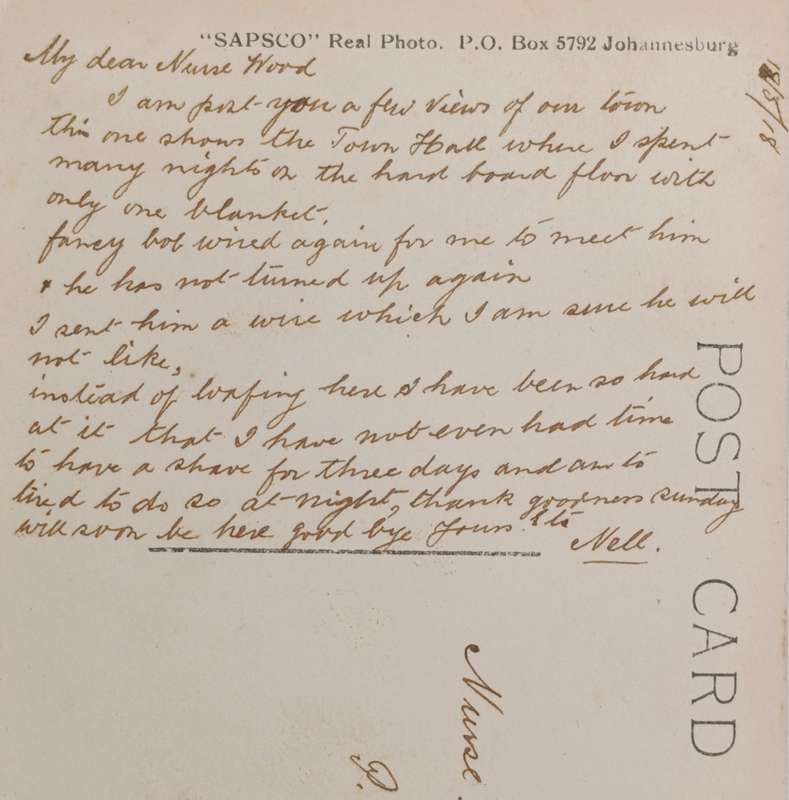 "SAPSCO" Real Photo. P.O. Box 5792 Johannesburg
18/3/18
My dear Nurse Wood
I am post you a few views of our town
this one shows the Town Hall where I spent
many nights on the hard board floor with
only one blanket.
fancy bob wired again for me to meet him
& he has not turned up again
I sent him a wire which I am sure he will
not like,
instead of loafing here I have been so hard
at it that I have not even had time
to have a shave for three days and am to
tired to do so at night, thank goodness sunday
will soon be here good bye Yours
Nell.
POST CARD
Nurse
P.